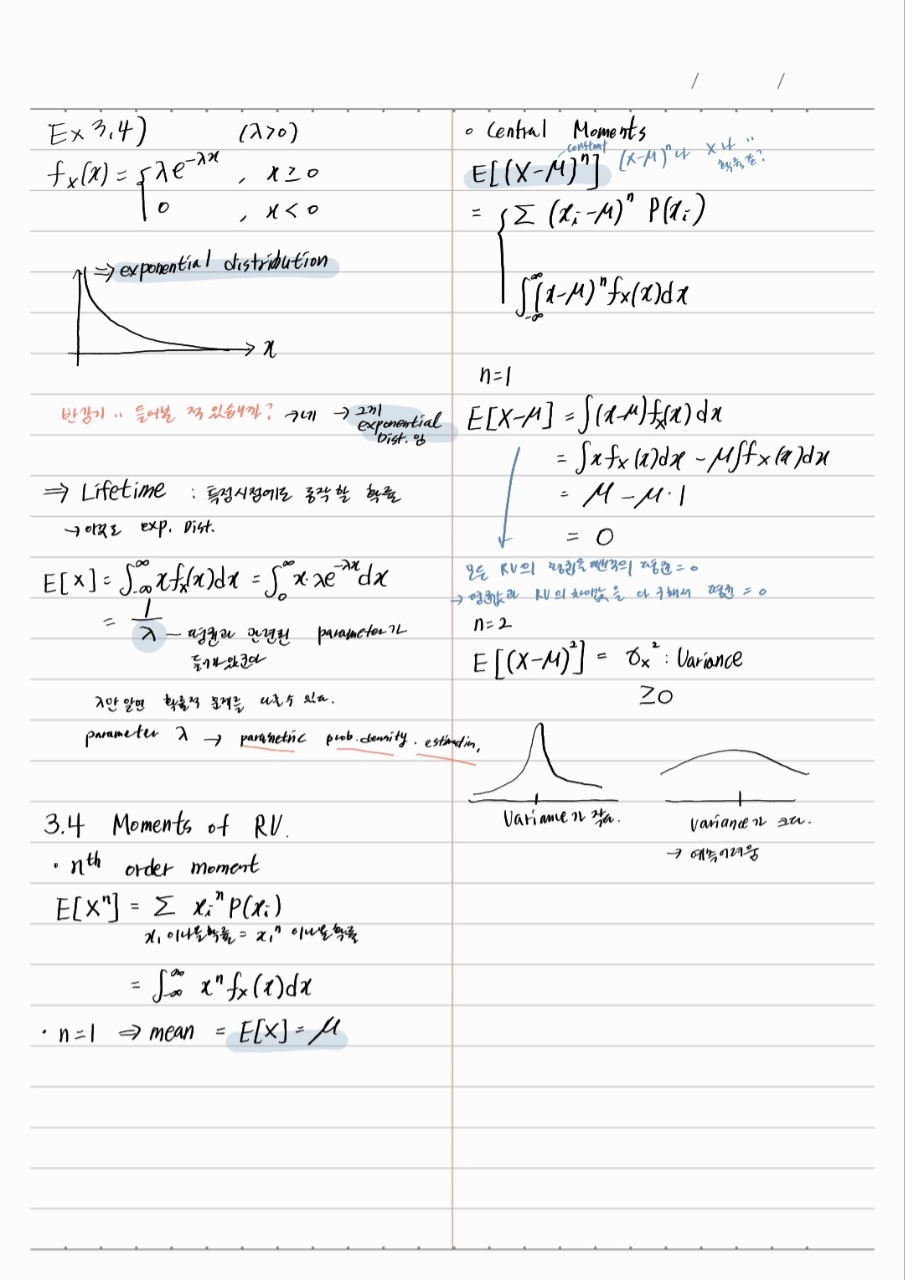 Ex 3.4) (λ>0)
fx(x) = { λe^-λx , x ≥ 0
0 , x < 0
⇒ exponential distribution
x
반감기 .. 들어본 적 있습니까? → 네 → 그게
exponential
Dist. 임
⇒ Lifetime : 특정시점에도 동작할 확률
→ 이것도 exp. Dist.
E[X] = ∫_-∞^∞ x fx(x)dx = ∫_0^∞ x·λe^-λx dx
= 1/λ — 평균과 관련된 parameter가
들어 있구나
λ만 알면 확률적 문제를 다룰수 있다.
parameter λ → parametric prob. density. estimation.
3.4 Moments of RV.
· nth order moment
E[X^n] = Σ xi^n P(xi)
x1 이나올확률 = x1^n 이나올확률
= ∫_-∞^∞ x^n fx(x)dx
· n=1 ⇒ mean = E[X] = μ
○ Central Moments
constant
E[(X-μ)^n] (X-μ)^n나 X나 ..
확률같?
= { Σ (xi-μ)^n P(xi)
∫_-∞^∞ (x-μ)^n fx(x)dx
n=1
E[X-μ] = ∫(x-μ)fx(x)dx
= ∫x fx(x)dx - μ∫fx(x)dx
= μ - μ·1
= 0
모든 RV의 평균을 뺀것의 평균 = 0
→ 평균값과 RV의 차이값을 다 구해서 평균 = 0
n=2
E[(X-μ)^2] = σx^2 : Variance
≥0
Variance가 작다.
Variance가 크다.
→ 예측어려움